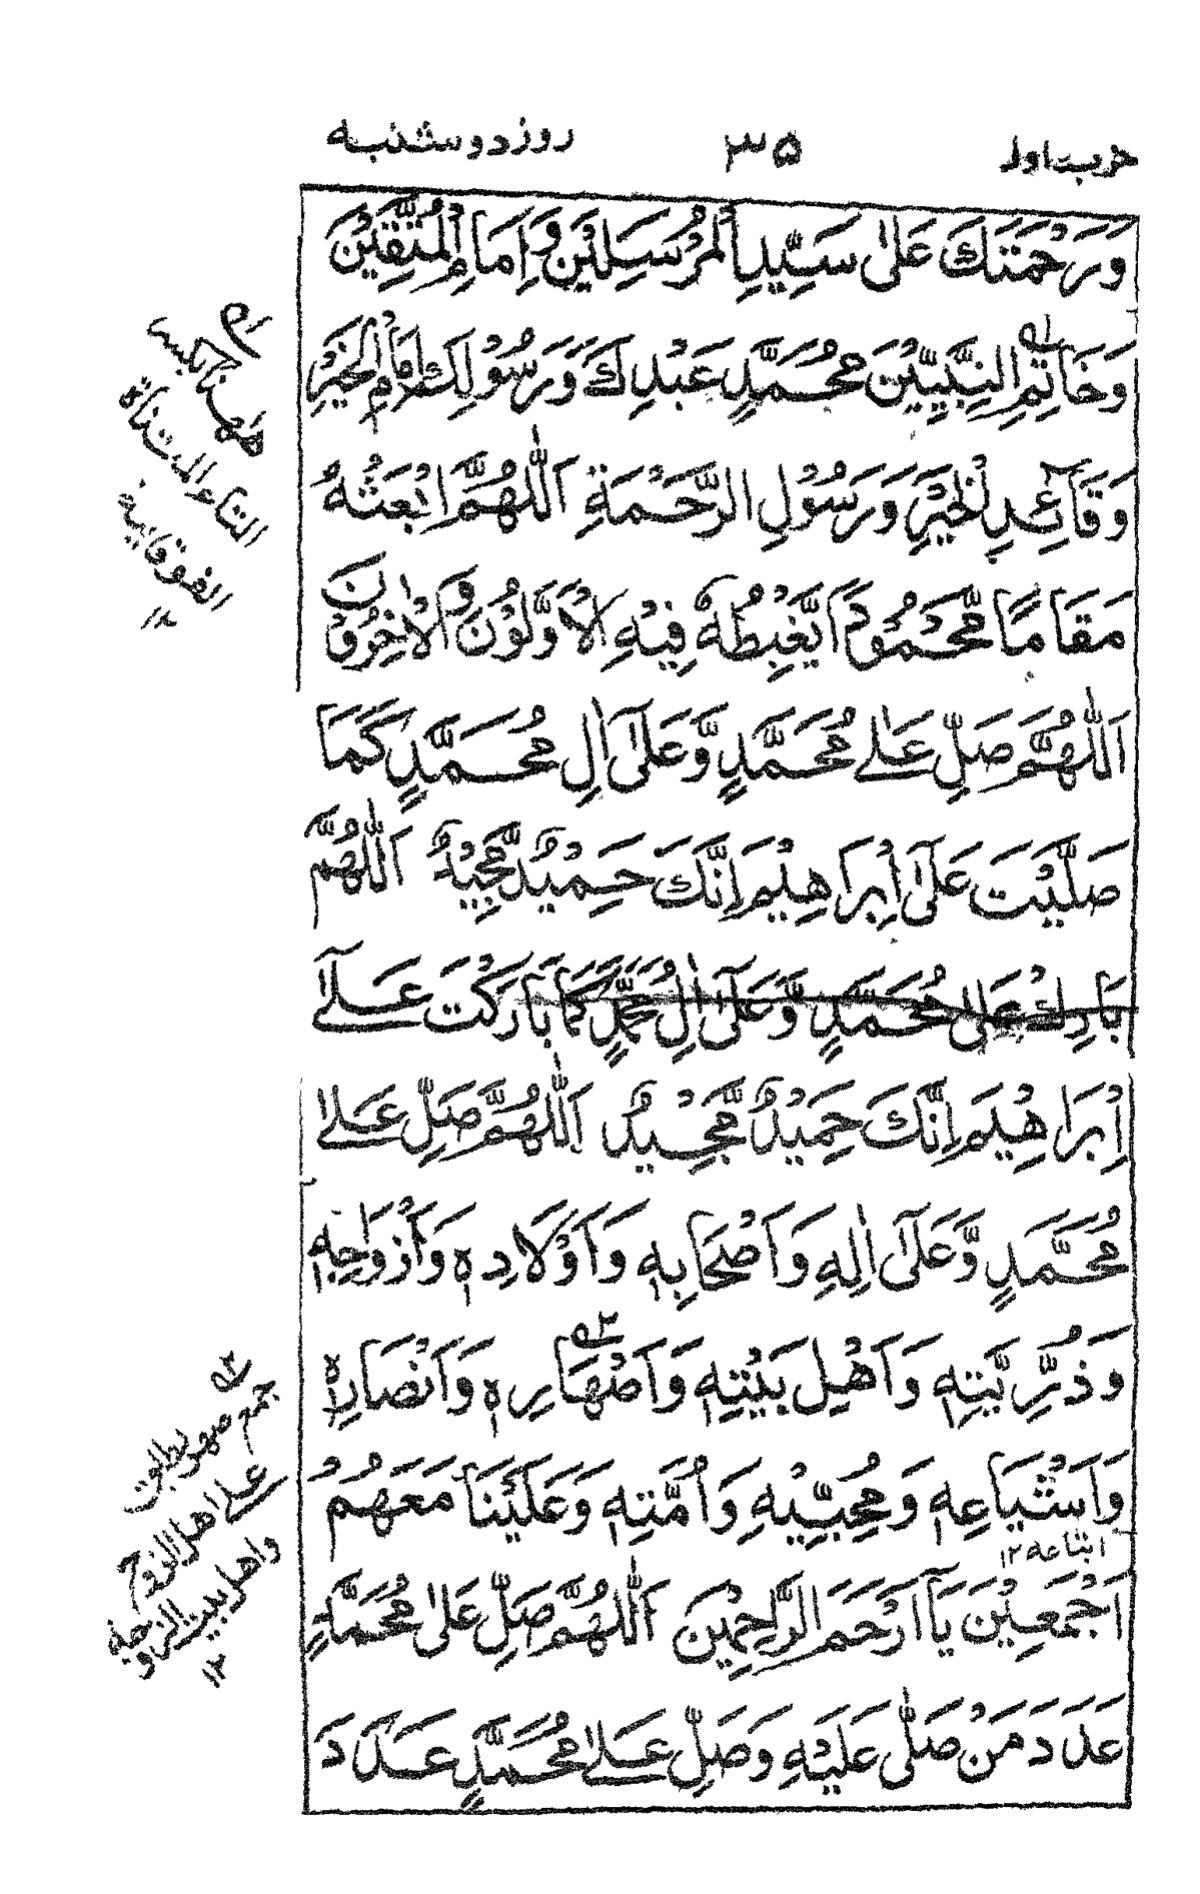 حزب اول ۳۵ روز دوشنبه
وَرَحْمَتَكَ عَلٰى سَيِّدِ الْمُرْسَلِيْنَ وَاِمَامِ الْمُتَّقِيْنَ
وَخَاتِمِ النَّبِيِّيْنَ مُحَمَّدٍ عَبْدِكَ وَرَسُوْلِكَ اِمَامِ الْخَيْرِ
وَقَآئِدِ الْخَيْرِ وَرَسُوْلِ الرَّحْمَةِ اَللّٰهُمَّ ابْعَثْهُ
مَقَامًا مَّحْمُوْدًا يَّغْبِطُهٗ فِيْهِ الْاَوَّلُوْنَ وَالْاٰخِرُوْنَ
اَللّٰهُمَّ صَلِّ عَلٰى مُحَمَّدٍ وَّعَلٰٓى اٰلِ مُحَمَّدٍ كَمَا
صَلَّيْتَ عَلٰٓى اِبْرَاهِيْمَ اِنَّكَ حَمِيْدٌ مَّجِيْدٌ اَللّٰهُمَّ
بَارِكْ عَلٰى مُحَمَّدٍ وَّعَلٰٓى اٰلِ مُحَمَّدٍ كَمَا بَارَكْتَ عَلٰٓى
اِبْرَاهِيْمَ اِنَّكَ حَمِيْدٌ مَّجِيْدٌ اَللّٰهُمَّ صَلِّ عَلٰى
مُحَمَّدٍ وَّعَلٰٓى اٰلِهٖ وَاَصْحَابِهٖ وَاَوْلَادِهٖ وَاَزْوَاجِهٖ
وَذُرِّيَّتِهٖ وَاَهْلِ بَيْتِهٖ وَاَصْهَارِهٖ وَاَنْصَارِهٖ
وَاَشْيَاعِهٖ وَمُحِبِّيْهِ وَاُمَّتِهٖ وَعَلَيْنَا مَعَهُمْ
اتباعه ۱۲
اَجْمَعِيْنَ يَآ اَرْحَمَ الرَّاحِمِيْنَ اَللّٰهُمَّ صَلِّ عَلٰى مُحَمَّدٍ
عَدَدَ مَنْ صَلّٰى عَلَيْهِ وَصَلِّ عَلٰى مُحَمَّدٍ عَدَدَ
بكسر
التاء المثناة
الفوقانية
۱۲
جمع صهر يطلق
على اهل الزوج
واهل بيت الزوجة
۱۲